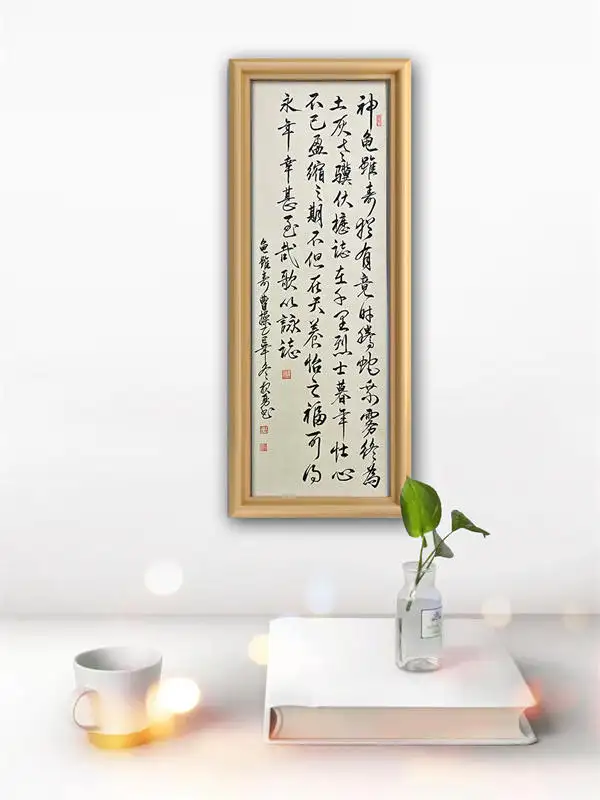 神龜雖壽猶有竟時騰蛇乘霧終為
土灰老驥伏櫪誌在千里烈士暮年壯心
不已盈縮之期不但在天養怡之福可得
永年幸甚至哉歌以詠誌
龜雖壽曹操乙冬書